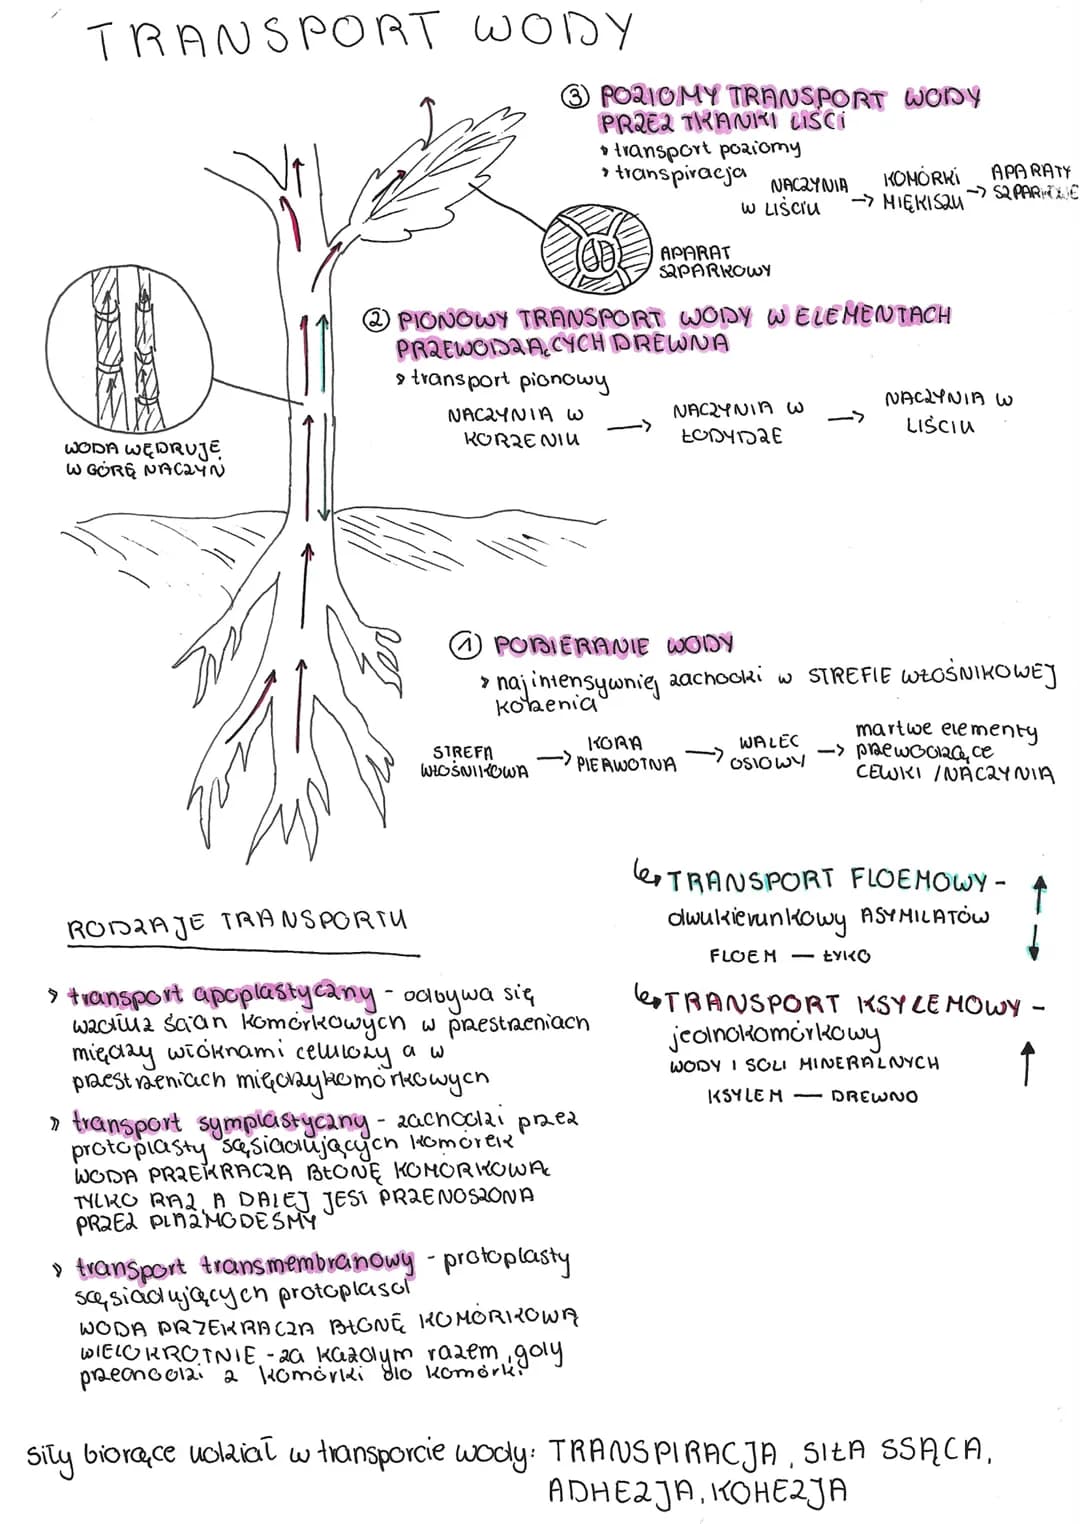 TRANSPORT WODY
③ POZIOMY TRANSPORT WODY
PRZEZ TKANKI LIŚCI
transport poziomy
transpiracja
NACZYNIA
W LIŚCIU
→ KOMÓRKI
MIĘKISZU
→ APARATY
SZPARKOWE
APARAT
SZPARKOWY
② PIONOWY TRANSPORT WODY W ELEMENTACH
PRZEWODZĄCYCH DREWNA
transport pionowy
NACZYNIA W
KORZENIU
→ NACZYNIA W
ŁODYDZE
→ NACZYNIA W
LIŚCIU
WODA WĘDRUJE
W GÓRĘ NACZYŃ
① POBIERANIE WODY
najintensywniej zachodzi w STREFIE WŁOŚNIKOWEJ
korzenia
STREFA
WŁOŚNIKOWA
→ KORA
PIERWOTNA
→ WALEC
OSIOWY
→ martwe elementy
przewodzące
CEWKI / NACZYNIA
RODZAJE TRANSPORTU
transport apoplastyczny - odbywa się
wzdłuż ścian komórkowych w przestrzeniach
między włóknami celulozy a w
przestrzeniach międzykomórkowych
transport symplastyczny - zachodzi przez
protoplasty sąsiadujących komórek
WODA PRZEKRACZA BŁONĘ KOMÓRKOWĄ
TYLKO RAZ, A DALEJ JEST PRZENOSZONA
PRZEZ PLAZMODESMY
transport transmembranowy - protoplasty
sąsiadujących protoplasd
WODA PRZEKRACZA BŁONĘ KOMÓRKOWĄ
WIELOKROTNIE - za każdym razem, gdy
przechodzi z komórki do komórki
TRANSPORT FLOEMOWY -
dwukierunkowy ASYMILATÓW
FLOEM — ŁYKO
TRANSPORT KSYLEMOWY -
jednokomórkowy
WODY I SOLI MINERALNYCH
KSYLEM — DREWNO
siły biorące udział w transporcie wody: TRANSPIRACJA, SIŁA SSĄCA,
ADHEZJA, KOHEZJA